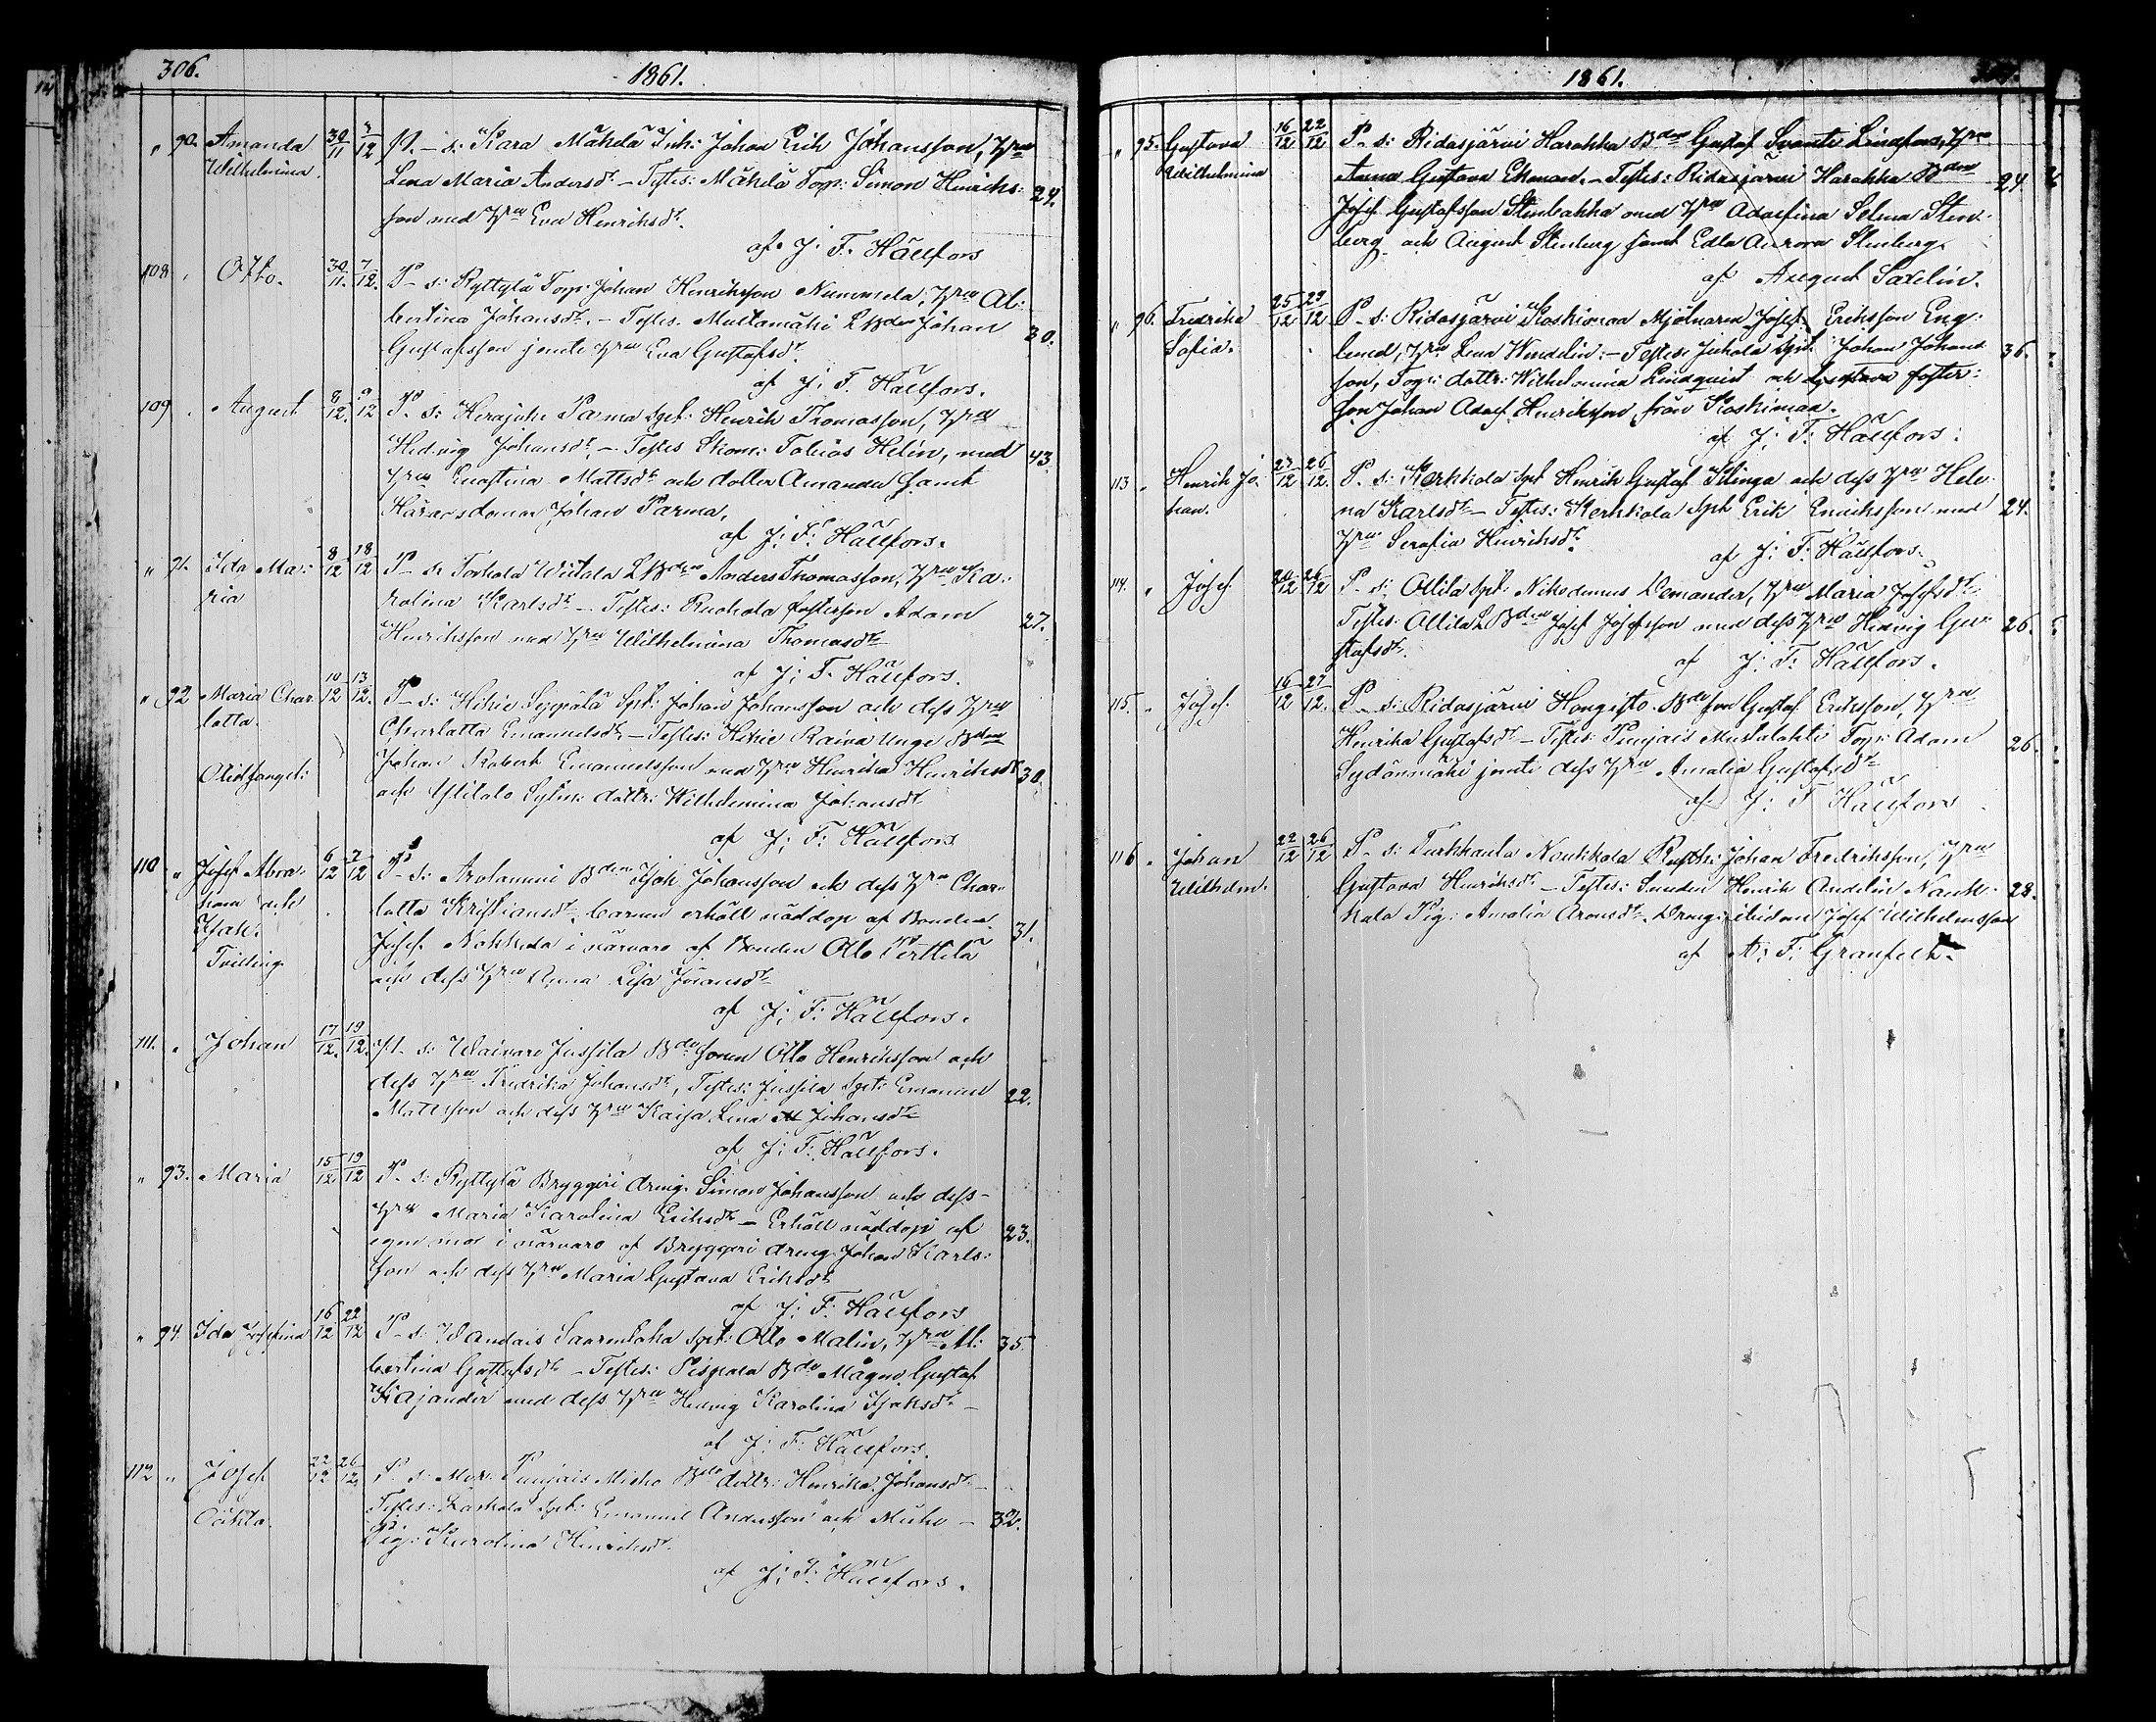 306.
1861.
" 90. Amanda 30/11 7/12 P. s: Kara Mäkelä Inh: Johan Erik Johansson, Hru
Wilhelmina. Lena Maria Andersdr. – Testes: Mäkelä Torp: Simon Henriks: 24.
son med Hru Eva Henriksdr.
af J. F. Hällfors
108 " Otto. 30/11. 7/12. P. s: Ryttylä Torp: Johan Henriksson Nummela, Hru Al:
bertina Johansdr. – Testes. Multamäki LBden Johan 30.
Gustafsson jemte Hru Eva Gustafsdr.
af J. F. Hällfors.
109 " August 8/12. 9/12 P. s: Herajoki Parma Spt: Henrik Thomasson, Hru
Hedvig Johansdr. – Testes Ekon: Tobias Helin, med 43.
Hru Ernestina Mattsdr och dotter Amanda samt
Häradsdomar Johan Parma.
af J: F: Hällfors.
" 91. Ida Ma: 8/12 18/12 P. s: Torhola Wistala LBden Anders Thomasson, Hru Ka:
ria rolina Karlsdr – Testes: Ruohola fosterson Adam 27.
Henriksson med Hru Wilhelmina Thomasdr
af J: F. Hällfors.
" 92 Maria Char 10/12 13/12. P. s: Hikie Seppälä Spt: Johan Johansson och dess Hru
lotta. Charlotta Emanuelsdr – Testes: Hikie Raiva Unge Bden
Oliofsangel: Johan Robert Emanuelsson med Hru Henrika Henriksdr 30.
och Ylitalo Sytn: dottr: Wilhelmina Johansdr
af J: F: Hällfors
110 " Josef Abra: 6/12 7/12 P. s: Arolammi Bden Isak Johansson och dess Hru Char:
ham och lotta Kristiansdr, barnen erhöll nöddop af Bonden
Isak. Josef Nokkela i närvaro af Bonden Otto Perttilä 31.
Tvilling. och dess Hru Anna Lisa Johansdr
af J: F: Hällfors.
111. " Johan 17/12. 19/12. P. s: Waivaro Jussila Bde sonen Otto Henriksson och
dess Hru Fredrika Johansdr, Testes: Jussila Spt: Emanuel 22.
Mattsson och dess Hru Kaisa Lena Johansdr
af J: F: Hällfors.
" 93. Maria 15/12 19/12 P. s: Ryttylä Bryggeri dreng: Simon Johansson och dess
Hru Maria Karolina Eriksdr – Erhöll nöddop af
egen mor i närvaro af Bryggeri dreng Johan Karls: 23.
son och dess Hru Maria Gustava Eriksdr
af J: F: Hällfors
" 94. Ida Josefina 16/12 22/12 P. s: Wandais Saarenkoha Spt: Otto Malin, Hru Al: 35.
bertina Gustafsdr – Testes: Pispala Bde Mågen Gustaf
Kajander med dess Hru Hedvig Karolina Isaksdr –
af J: F: Hällfors.
112 " Josef 22/12 26/12. P. s: Mor: Punjais Micko Bde dottr: Henrika Johansdr –
Oäkta. Testes: Laskala Spt: Emanuel Andersson och Micko – 32.
Pig: Karolina Henriksdr.
af J: F: Hällfors.
307.
1861.
" 95. Gustava 16/12 22/12 P. s: Ridasjärvi Harakka Bden Gustaf Svante Lindfors, Hru
Wilhelmina Anna Gustava Ekman. – Testes: Ridasjärvi Harakka Bden 24.
Josef Gustafsson Stenbakka med Hru Adolfina Selma Sten:
berg och August Stenberg samt Edla Aurora Stenberg.
af August Saxelin.
" 96. Fredrika 25/12 29/12 P. s: Ridasjärvi Koskimaa Mjölnaren Josef Eriksson Eng:
Sofia. lund, Hru Lena Wendelin: – Testes: Juhola Spt. Johan Johans 36.
son, Torp: dottr: Wilhelmina Lindquist och foster:
son Johan Adolf Henriksson från Koskimaa.
af J: F: Hällfors:
113 " Henrik Jo: 23/12 26/12. P. s: Kerkkola Spt Henrik Gustaf Klinga och dess Hru Hele:
han. na Karlsdr – Testes: Kerkkola Spt Erik Eriksson med 24.
Hru Serafia Henriksdr.
af J: F: Hällfors.
114. " Josef 20/12 26/12 P. s: Ollila Spt: Nikodemus Wemander, Hru Maria Josefsdr
Testes: Ollila LBden Josef Josefsson med dess Hru Hedvig Gu: 26.
stafsdr.
af J: F: Hällfors.
115. " Josef. 16/12 27/12. P. s: Ridasjärvi Hongisto Bde son Gustaf Eriksson, Hru
Henrika Gustafsdr – Testes: Punjais Mustalahti Torp: Adam 26.
Sydänmäki jemte dess Hru Amalia Gustafsdr
af J: F Hällfors
116 " Johan 22/12 26/12 P. s: Turkhaula Noukkala Rusth: Johan Fredriksson, Hru
Wilhelm. Gustava Henriksdr – Testes: Smeden Henrik Andelin Nouk: 28.
kala Pig: Amalia Aronsdr. Dreng: ibidem Josef Wilhelmsson
af A: F: Granfelt.